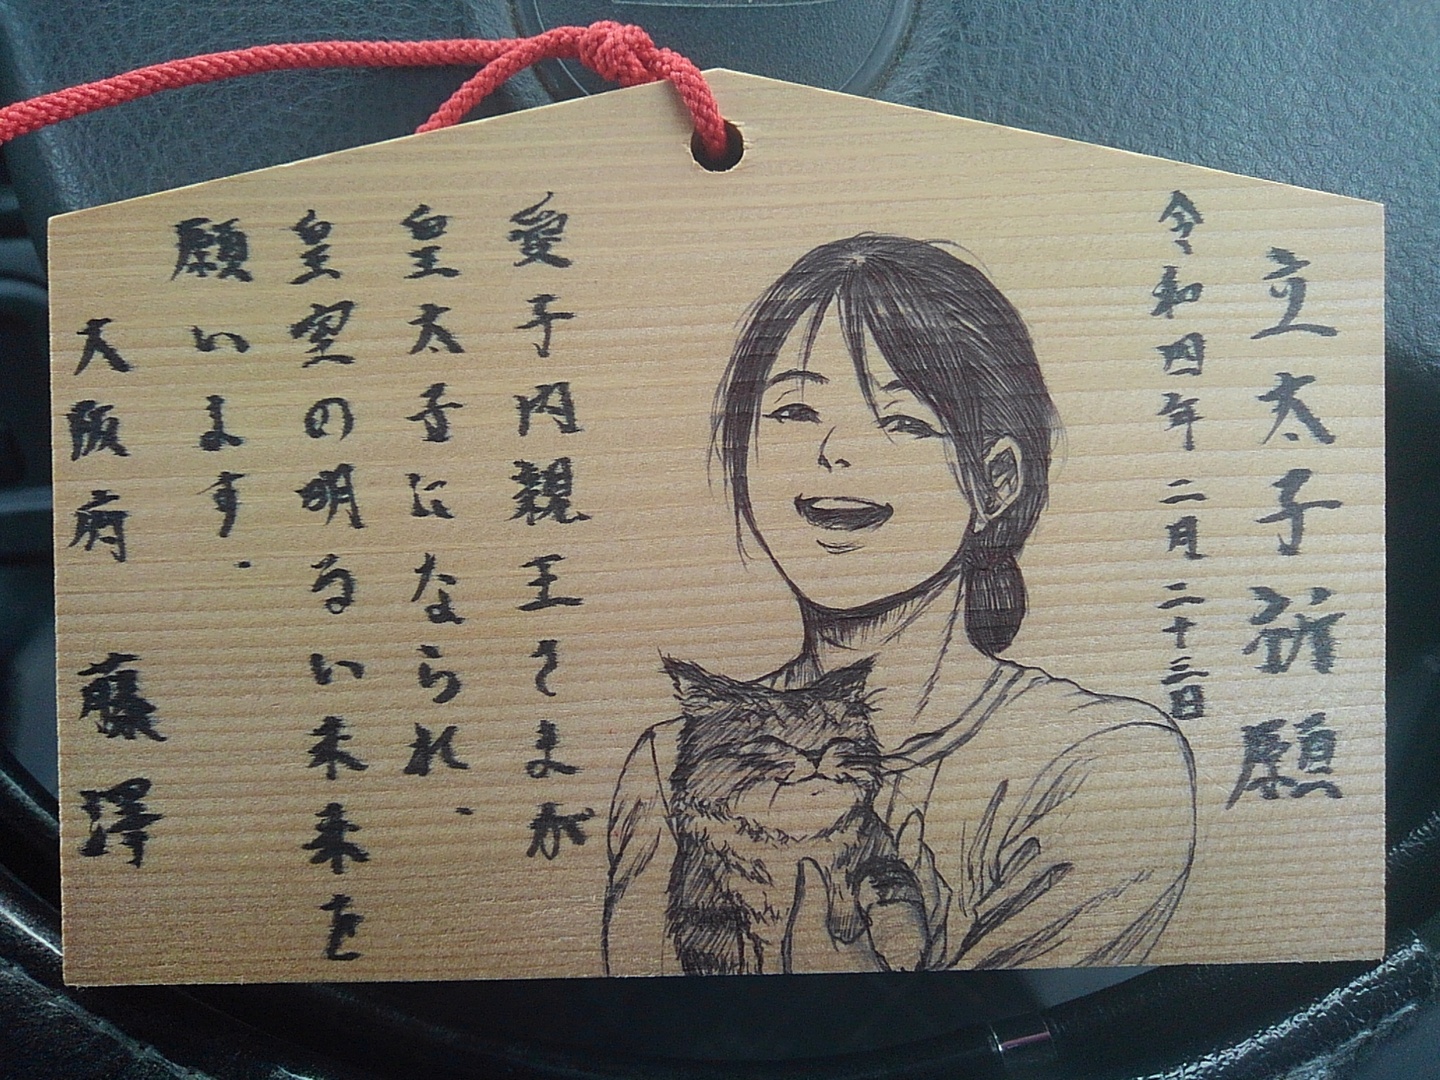 立太子祈願
令和四年二月二十三日
愛子内親王さまが
皇太子になられ、
皇室の明るい未来を
願います.
大阪府 藤澤